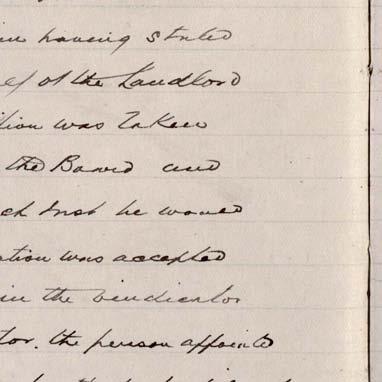 having stated
of the Landlord
tion was taken
the Board and
ch Inst he would
ation was accepted
in the vindicator
tor. the person appointed